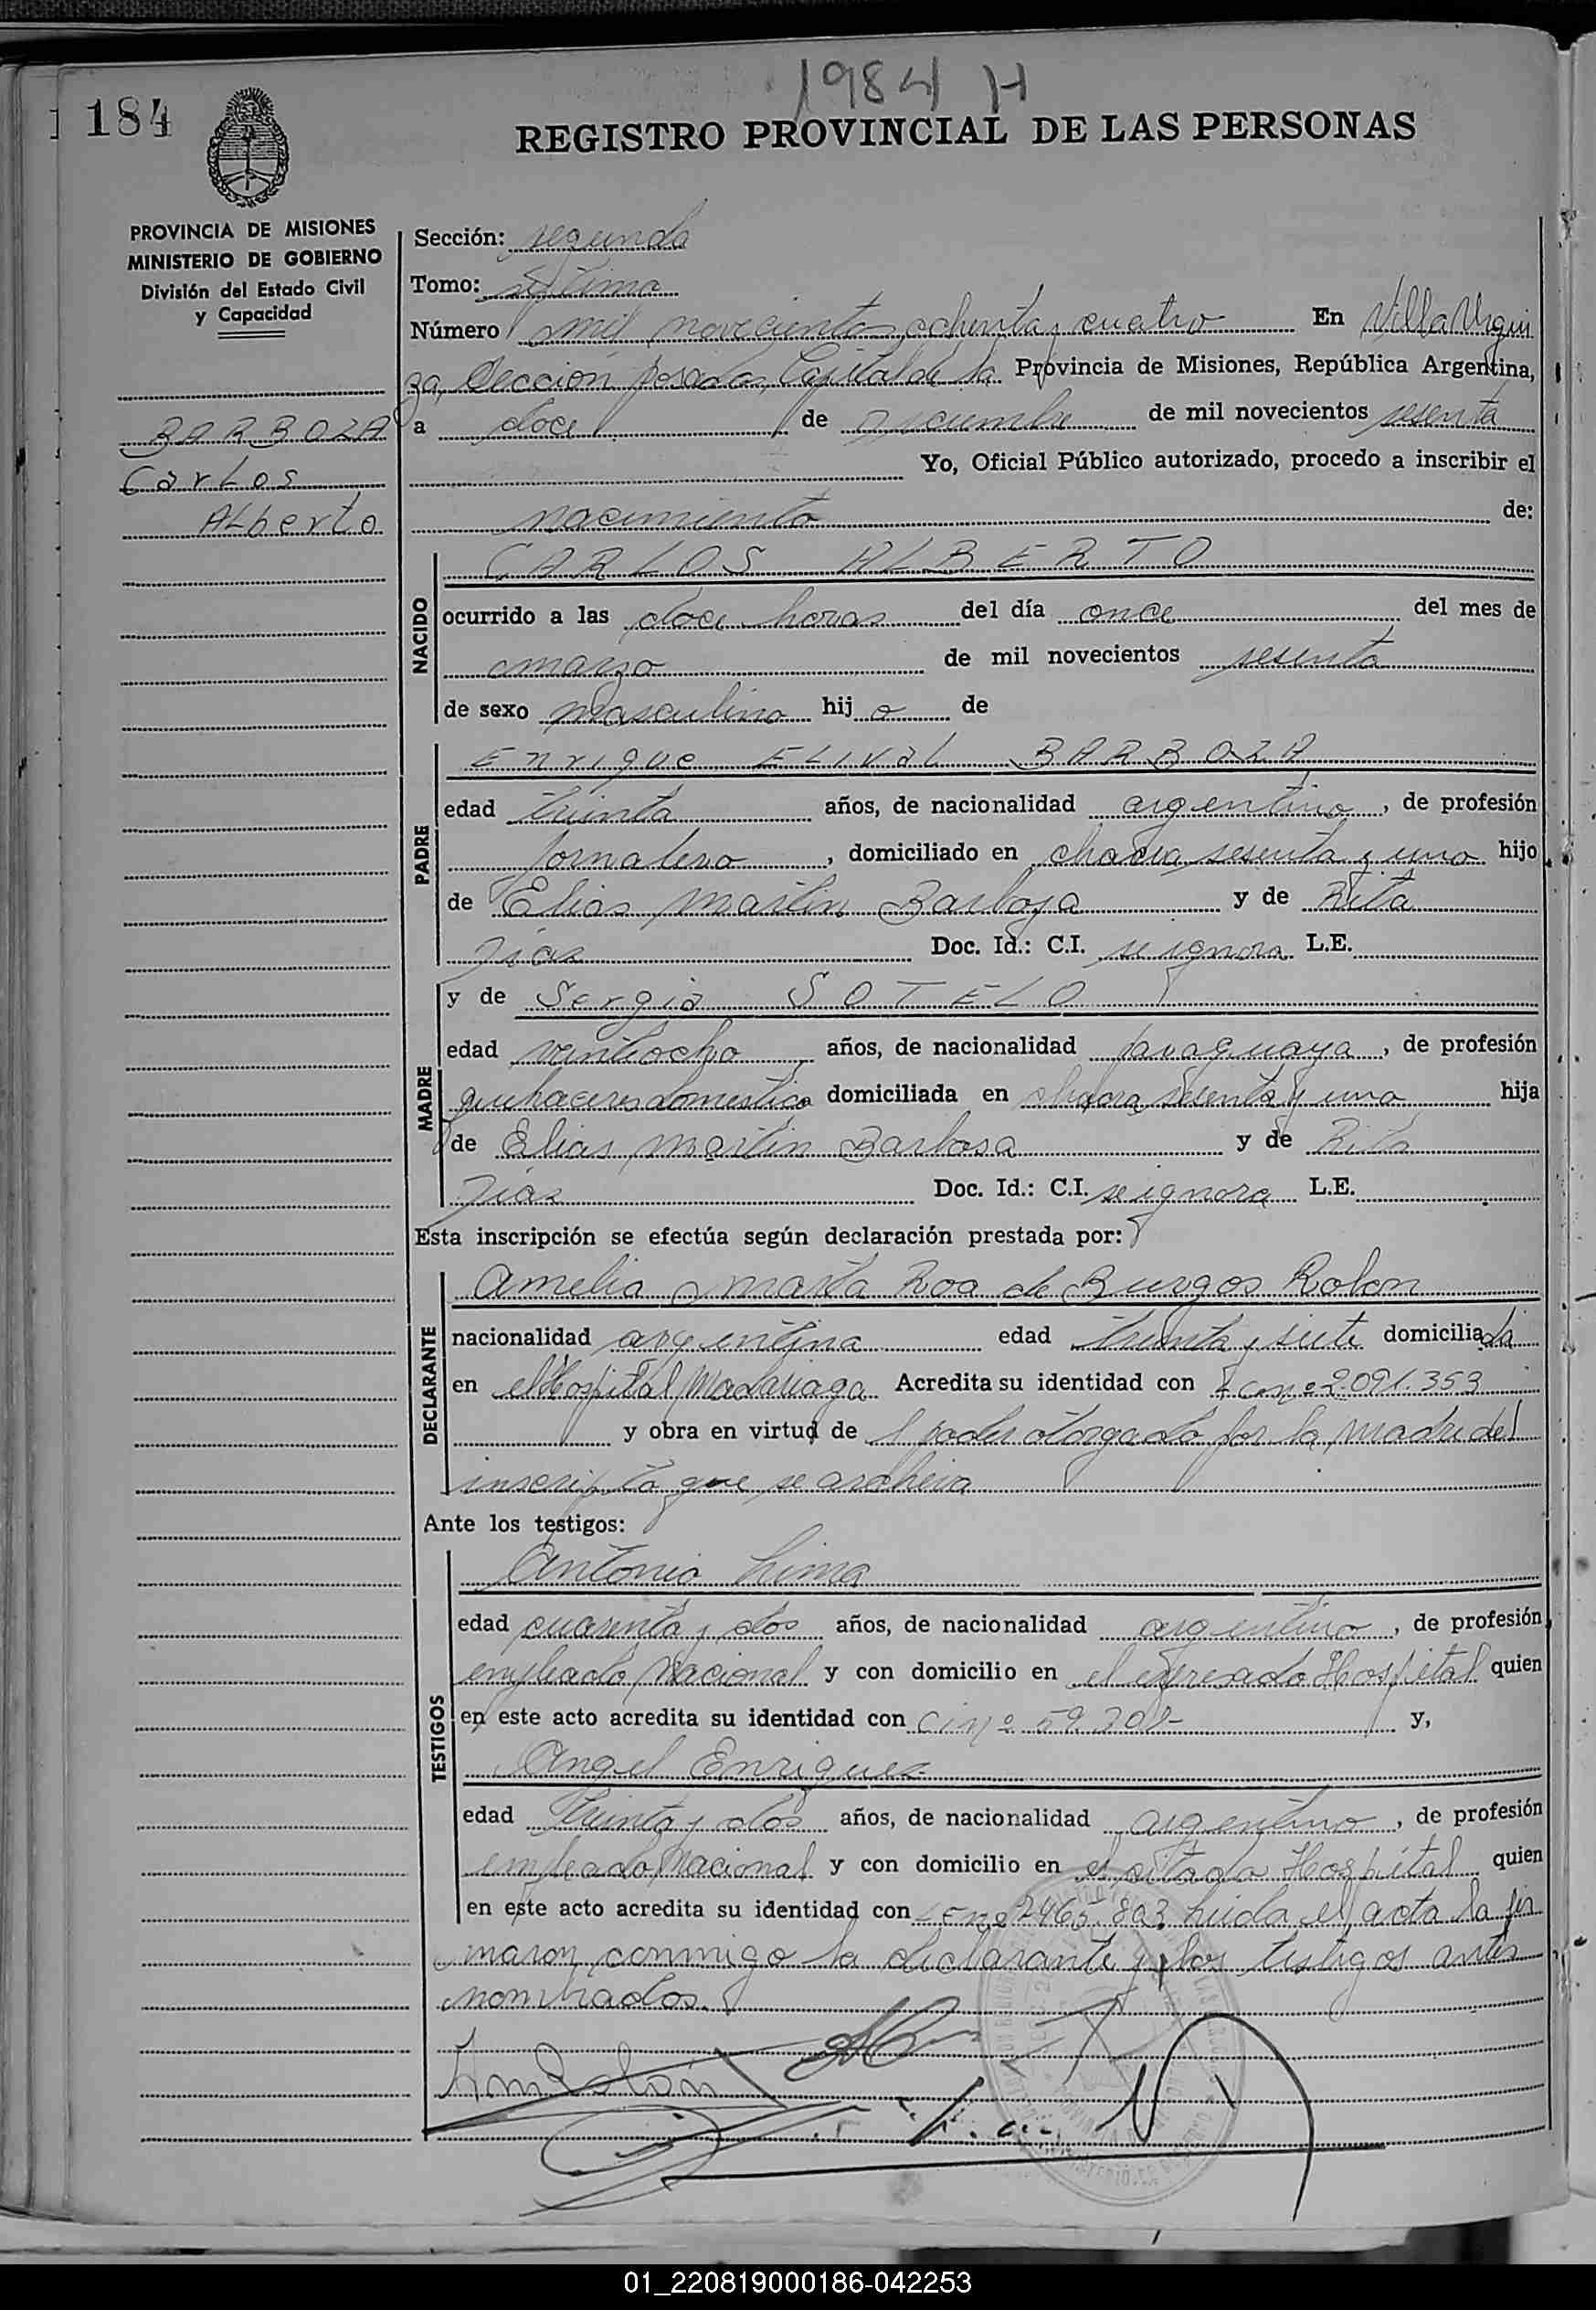 1984 H
184
REGISTRO PROVINCIAL DE LAS PERSONAS
PROVINCIA DE MISIONES
MINISTERIO DE GOBIERNO
División del Estado Civil
y Capacidad
BARBOZA
Carlos
Alberto
Sección: segunda
Tomo: septimo
Número mil novecientos ochenta y cuatro En Villa Urqui
za, Sección posadas, Capital de la Provincia de Misiones, República Argentina,
a doce de diciembre de mil novecientos sesenta
Yo, Oficial Público autorizado, procedo a inscribir el
nacimiento de:
NACIDO
CARLOS ALBERTO
ocurrido a las doce horas del día once del mes de
marzo de mil novecientos sesenta
de sexo masculino hijo de
PADRE
Enrique ELIVAL BARBOZA
edad treinta años, de nacionalidad argentino, de profesión
jornalero, domiciliado en chacra sesenta y uno hijo
de Elias Martin Barboza y de Rita
Dias Doc. Id.: C.I. se ignora L.E.
MADRE
y de Sergia SOTELO
edad veintiocho años, de nacionalidad paraguaya, de profesión
quehaceres domesticos domiciliada en chacra sesenta y uno hija
de Elias Martin Barbosa y de Rita
Dias Doc. Id.: C.I. se ignora L.E.
Esta inscripción se efectúa según declaración prestada por:
DECLARANTE
Amelia Marta Roa de Burgos Rolon
nacionalidad argentina edad treinta y siete domiciliada
en el Hospital Madariaga Acredita su identidad con nº 2.091.353
y obra en virtud del poder otorgado por la madre del
inscripto que se archiva
Ante los testigos:
TESTIGOS
Antonio Lima
edad cuarenta y dos años, de nacionalidad argentino, de profesión
empleado Nacional y con domicilio en el expresado Hospital quien
en este acto acredita su identidad con C.I. nº y,
Angel Enriquez
edad treinta y dos años, de nacionalidad argentino, de profesión
empleado Nacional y con domicilio en el citado Hospital quien
en este acto acredita su identidad con nº 2465.803 leida el acta la fir
maron conmigo la declarante y los testigos antes
nombrados.
01_220819000186-042253